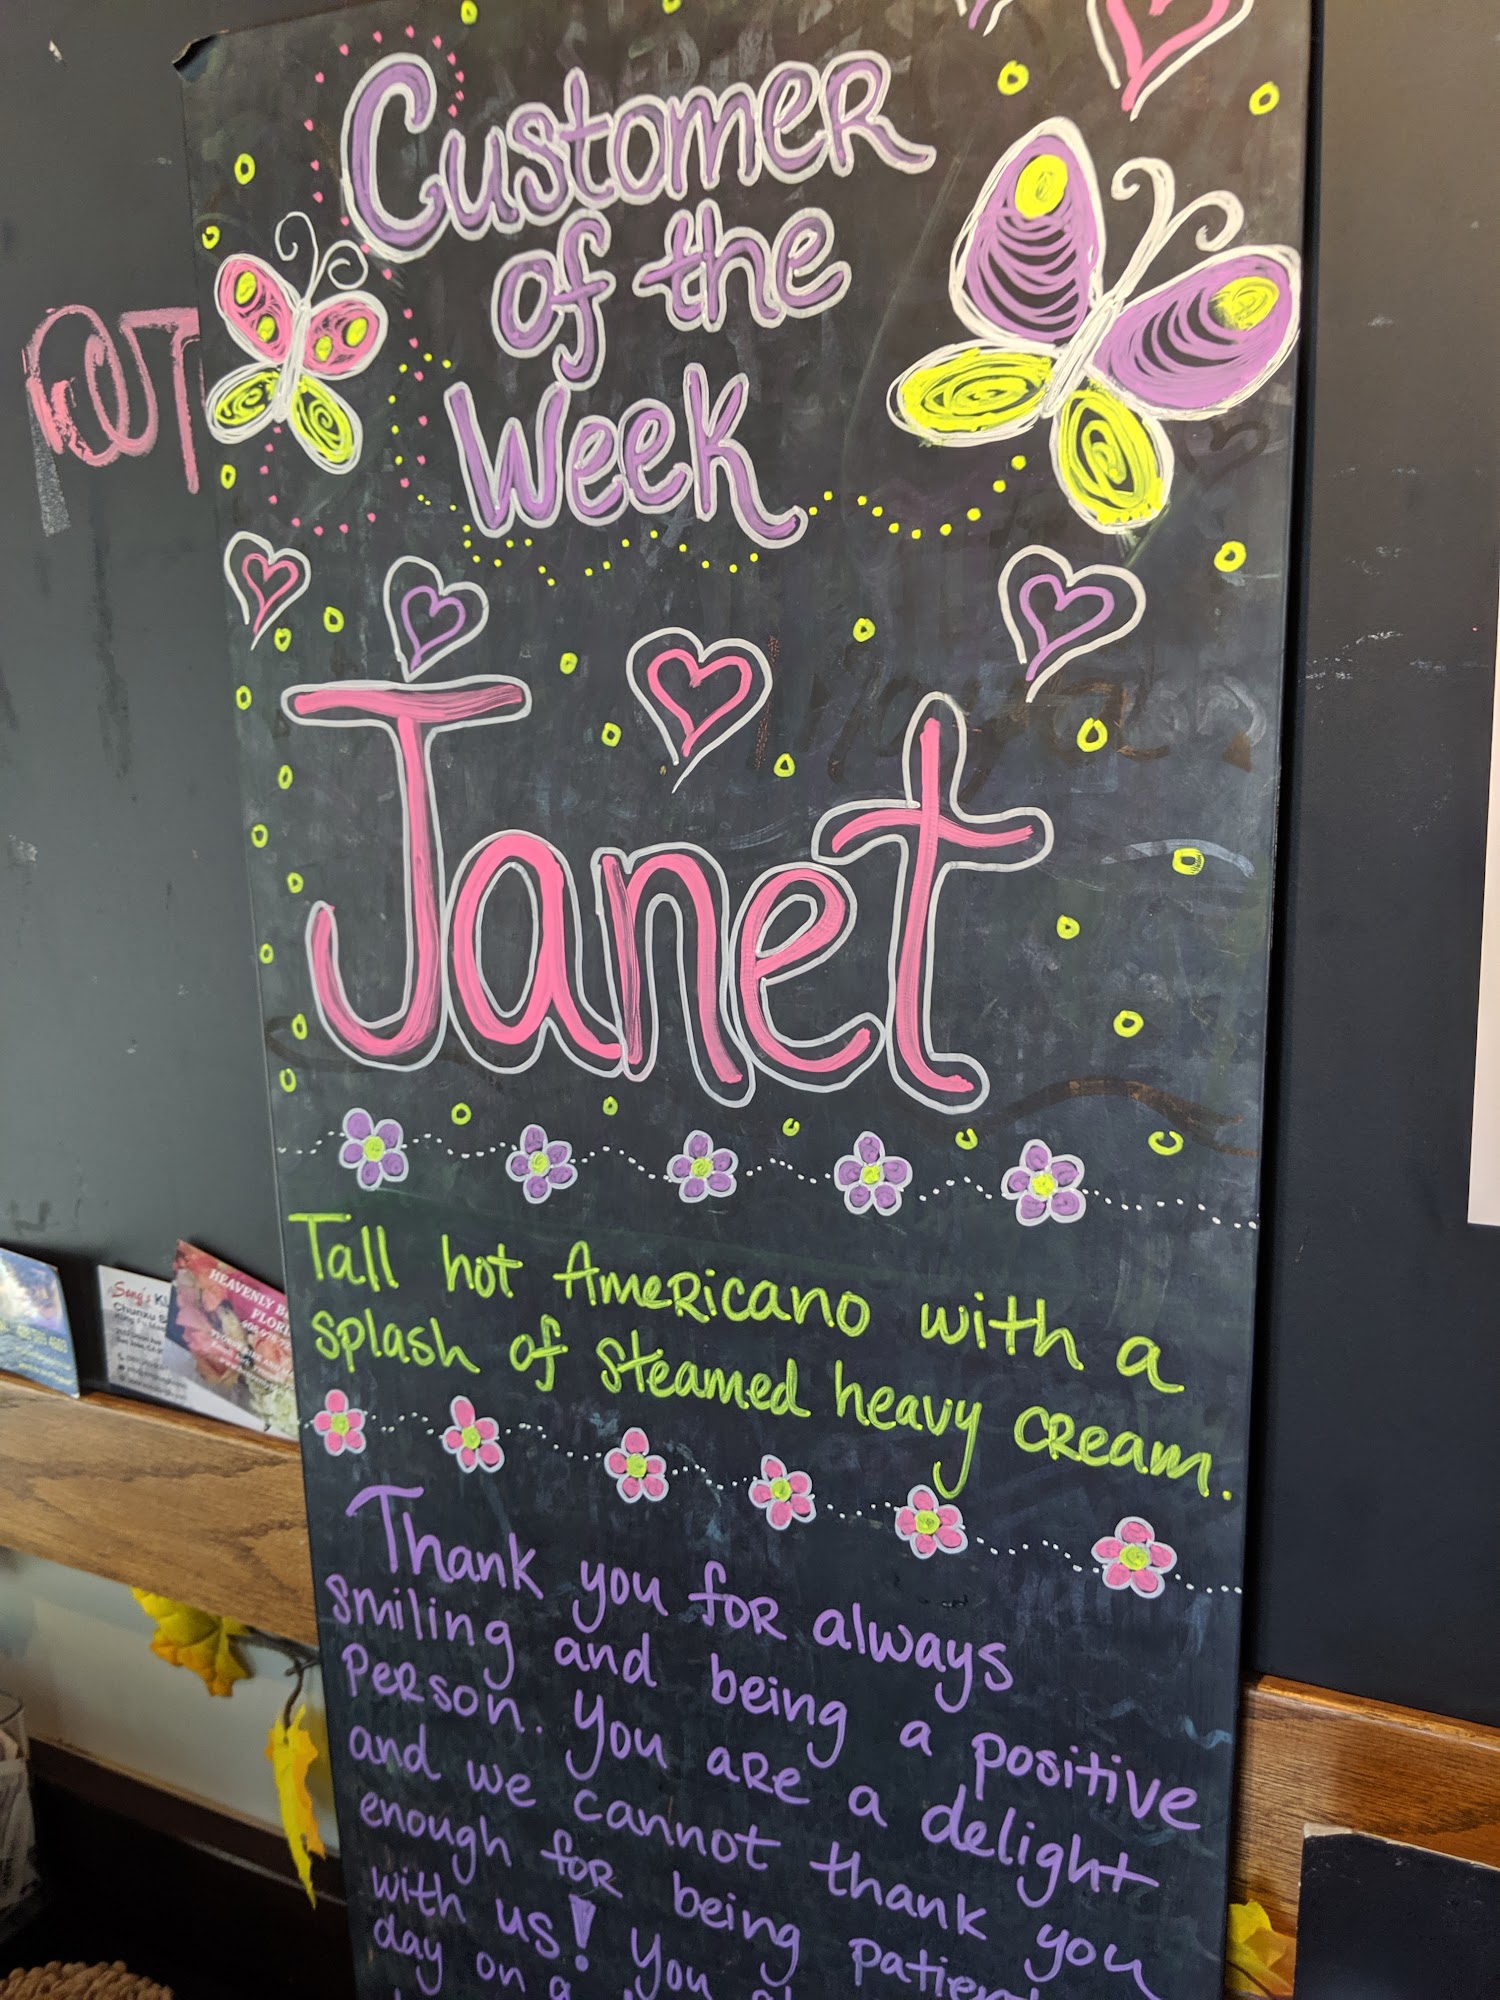 Customer
of the
Week
Janet
Tall hot Americano with a
splash of steamed heavy cream.
Thank you for always
smiling and being a positive
person. You are a delight
and we cannot thank you
enough for being patient
with us! You
day on a
OUT
Song's
Chunxu
HEAVENLY
FLORI